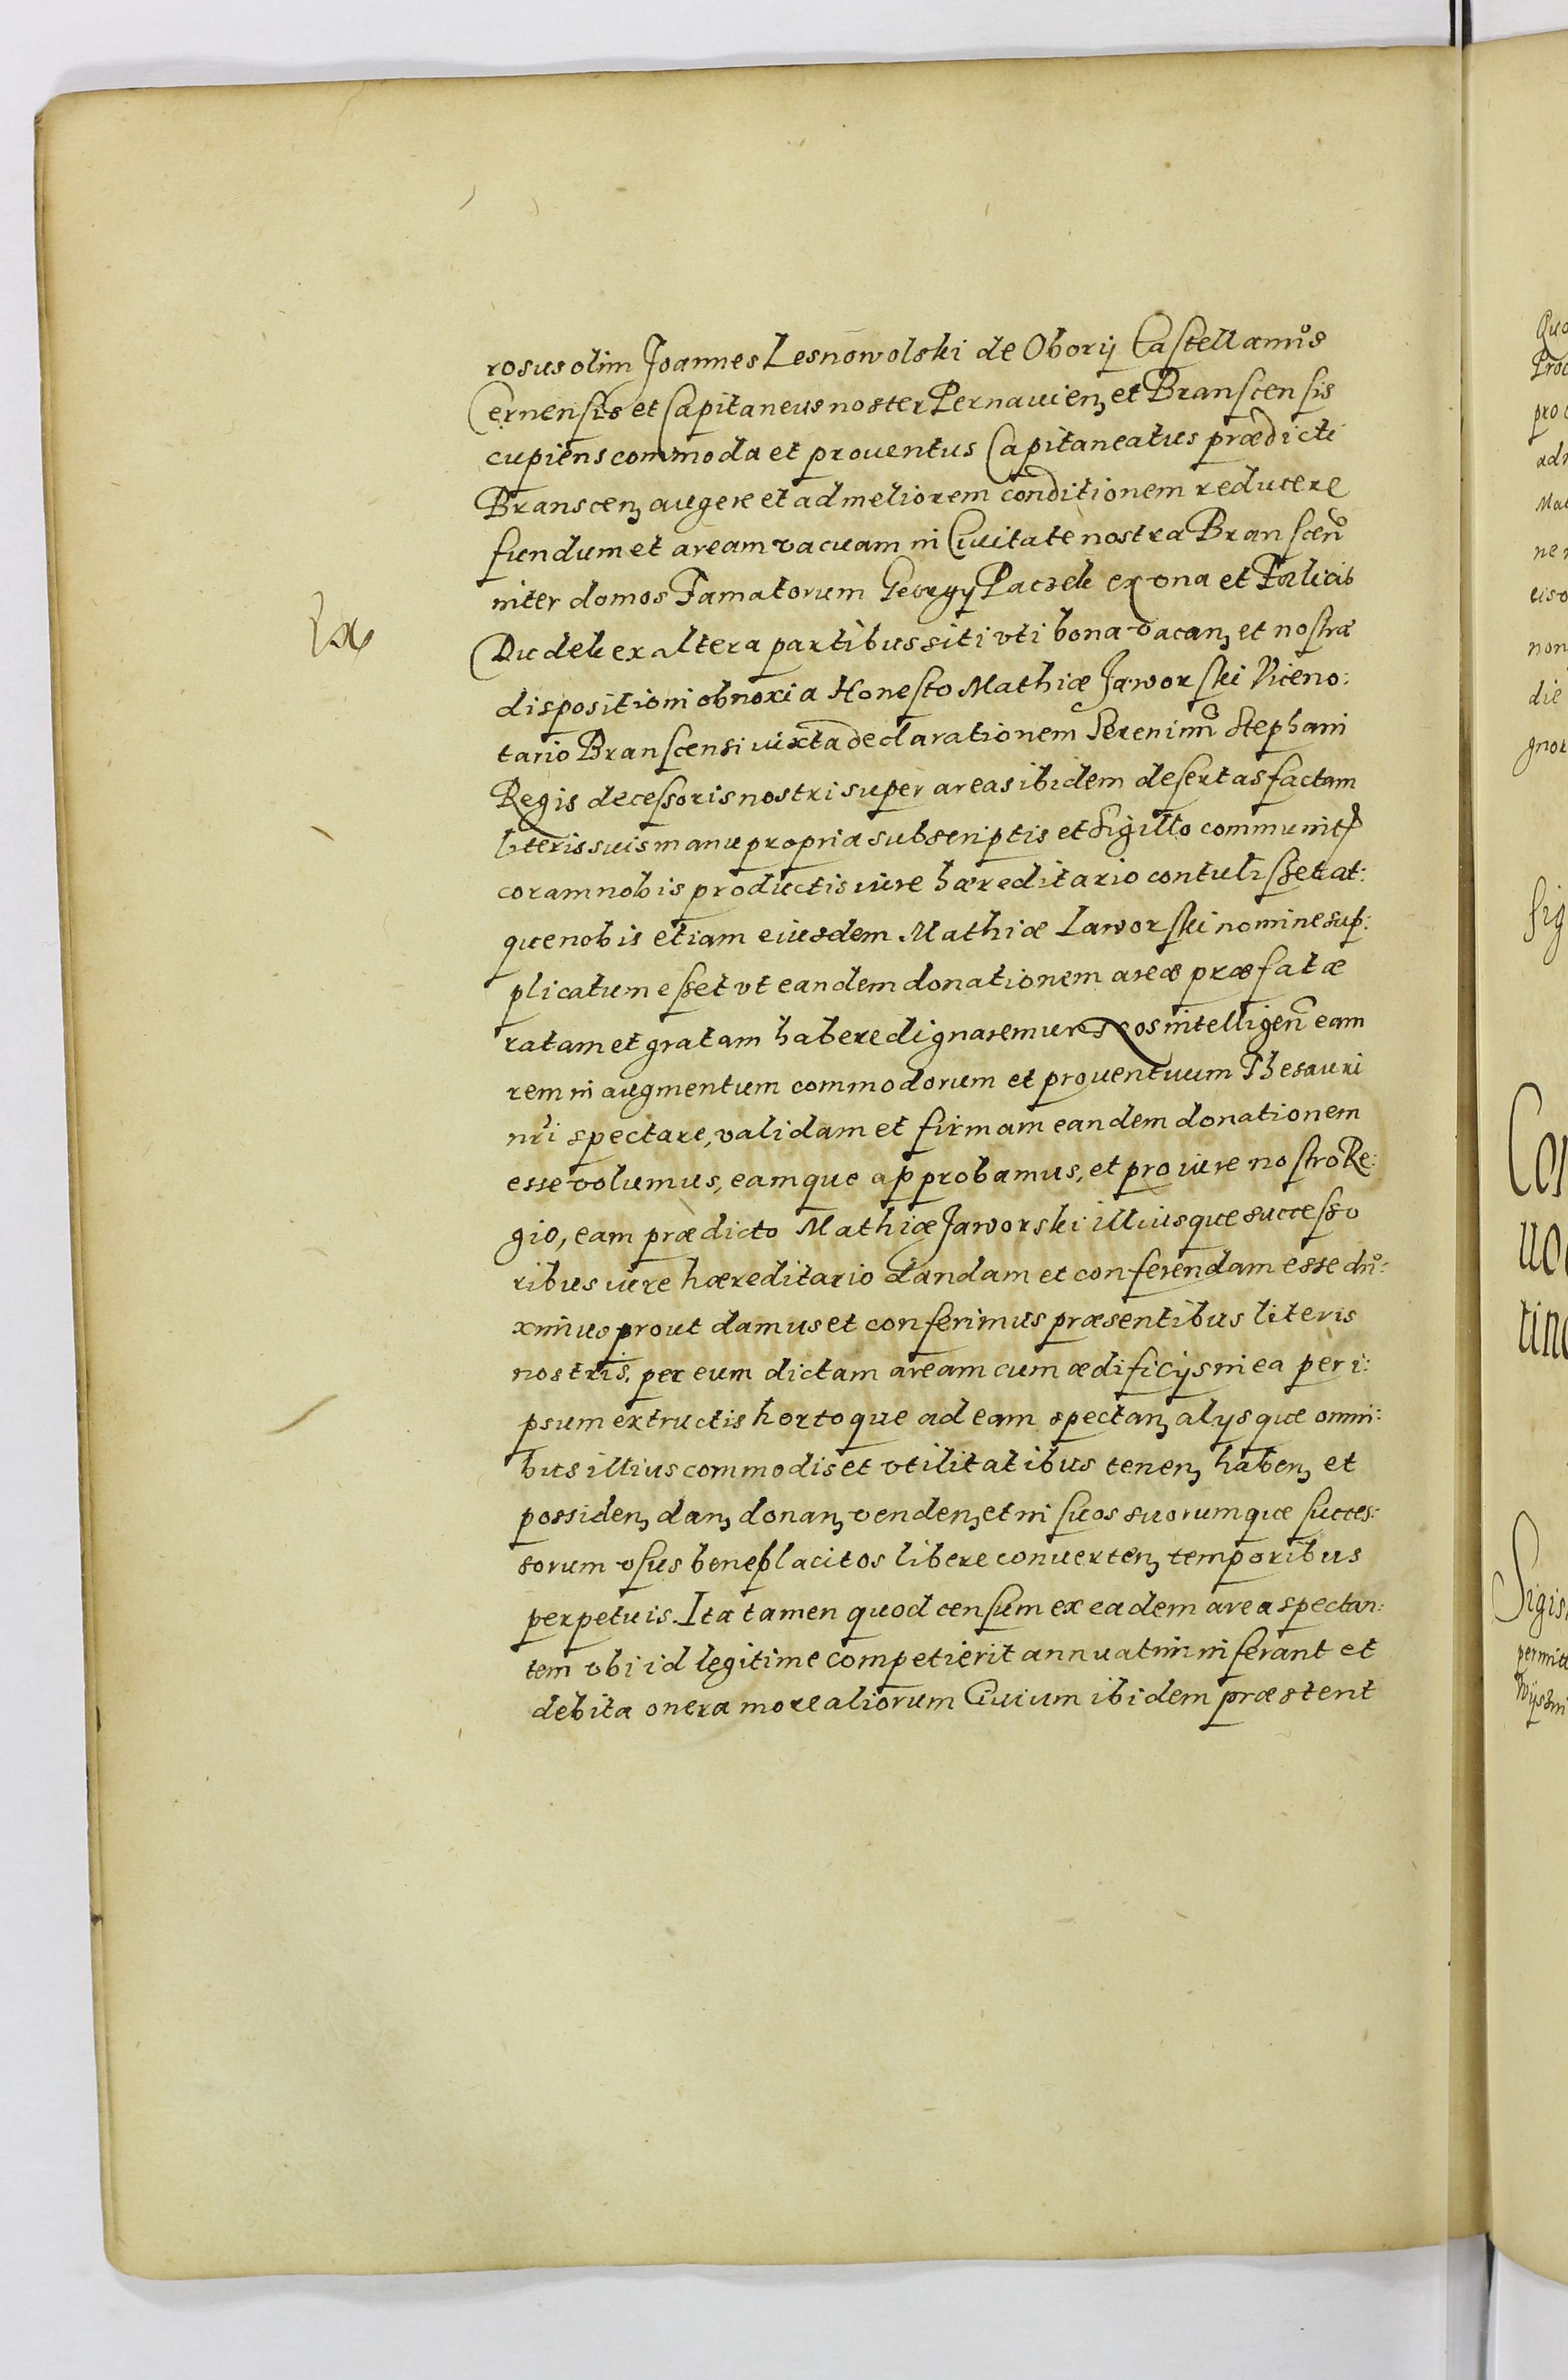 rosus olim Joannes Lesnowolski de Obory Castellanus
Cernensis et Capitaneus noster Pernauien, et Branscensis
cupiens commoda et prouentus Capitaneatus prædicti
Branscen, augere et ad meliorem conditionem reducere
fundum et aream vacuam in Ciuitate nostra Branscen
inter domos Famatorum Georgij Paczek ex vna et Fælicis
Dudek ex altera partibus siti vti bona vacan, et nostræ
dispositioni obnoxia Honesto Mathiæ Jaworski Viceno:
tario Branscensi iuxta declarationem Serenimi Stephani
Regis decessoris nostri super areas ibidem desertas factam
literis suis manu propria subscriptis et Sigillo communit
coram nobis productis iure hæreditario contulisset at:
que nobis etiam eiusdem Mathiæ Iaworski nomine sup:
plicatum esset vt eandem donationem areæ præfatæ
ratam et gratam habere dignaremur Nos intelligen eam
rem in augmentum commodorum et prouentuum Thesauri
nri spectare, validam et firmam eandem donationem
esse volumus, eamque approbamus, et pro iure nostro Re:
gio, eam prædicto Mathiæ Jaworski illiusque successo
ribus iure hæreditario dandam et conferendam esse du:
ximus prout damus et conferimus præsentibus literis
nostris, per eum dictam aream cum ædificijs in ea per i:
psum extructis hortoque ad eam spectan, alijsque omni:
bus illius commodis et vtilitatibus tenen, haben, et
possiden, dan, donan, venden, et in suos suorumque succes:
sorum vsus beneplacitos libere conuerten, temporibus
perpetuis. Ita tamen quod censum ex eadem area spectan:
tem vbi id legitime competierit annuatim inferant et
debita onera more aliorum Ciuium ibidem præstent